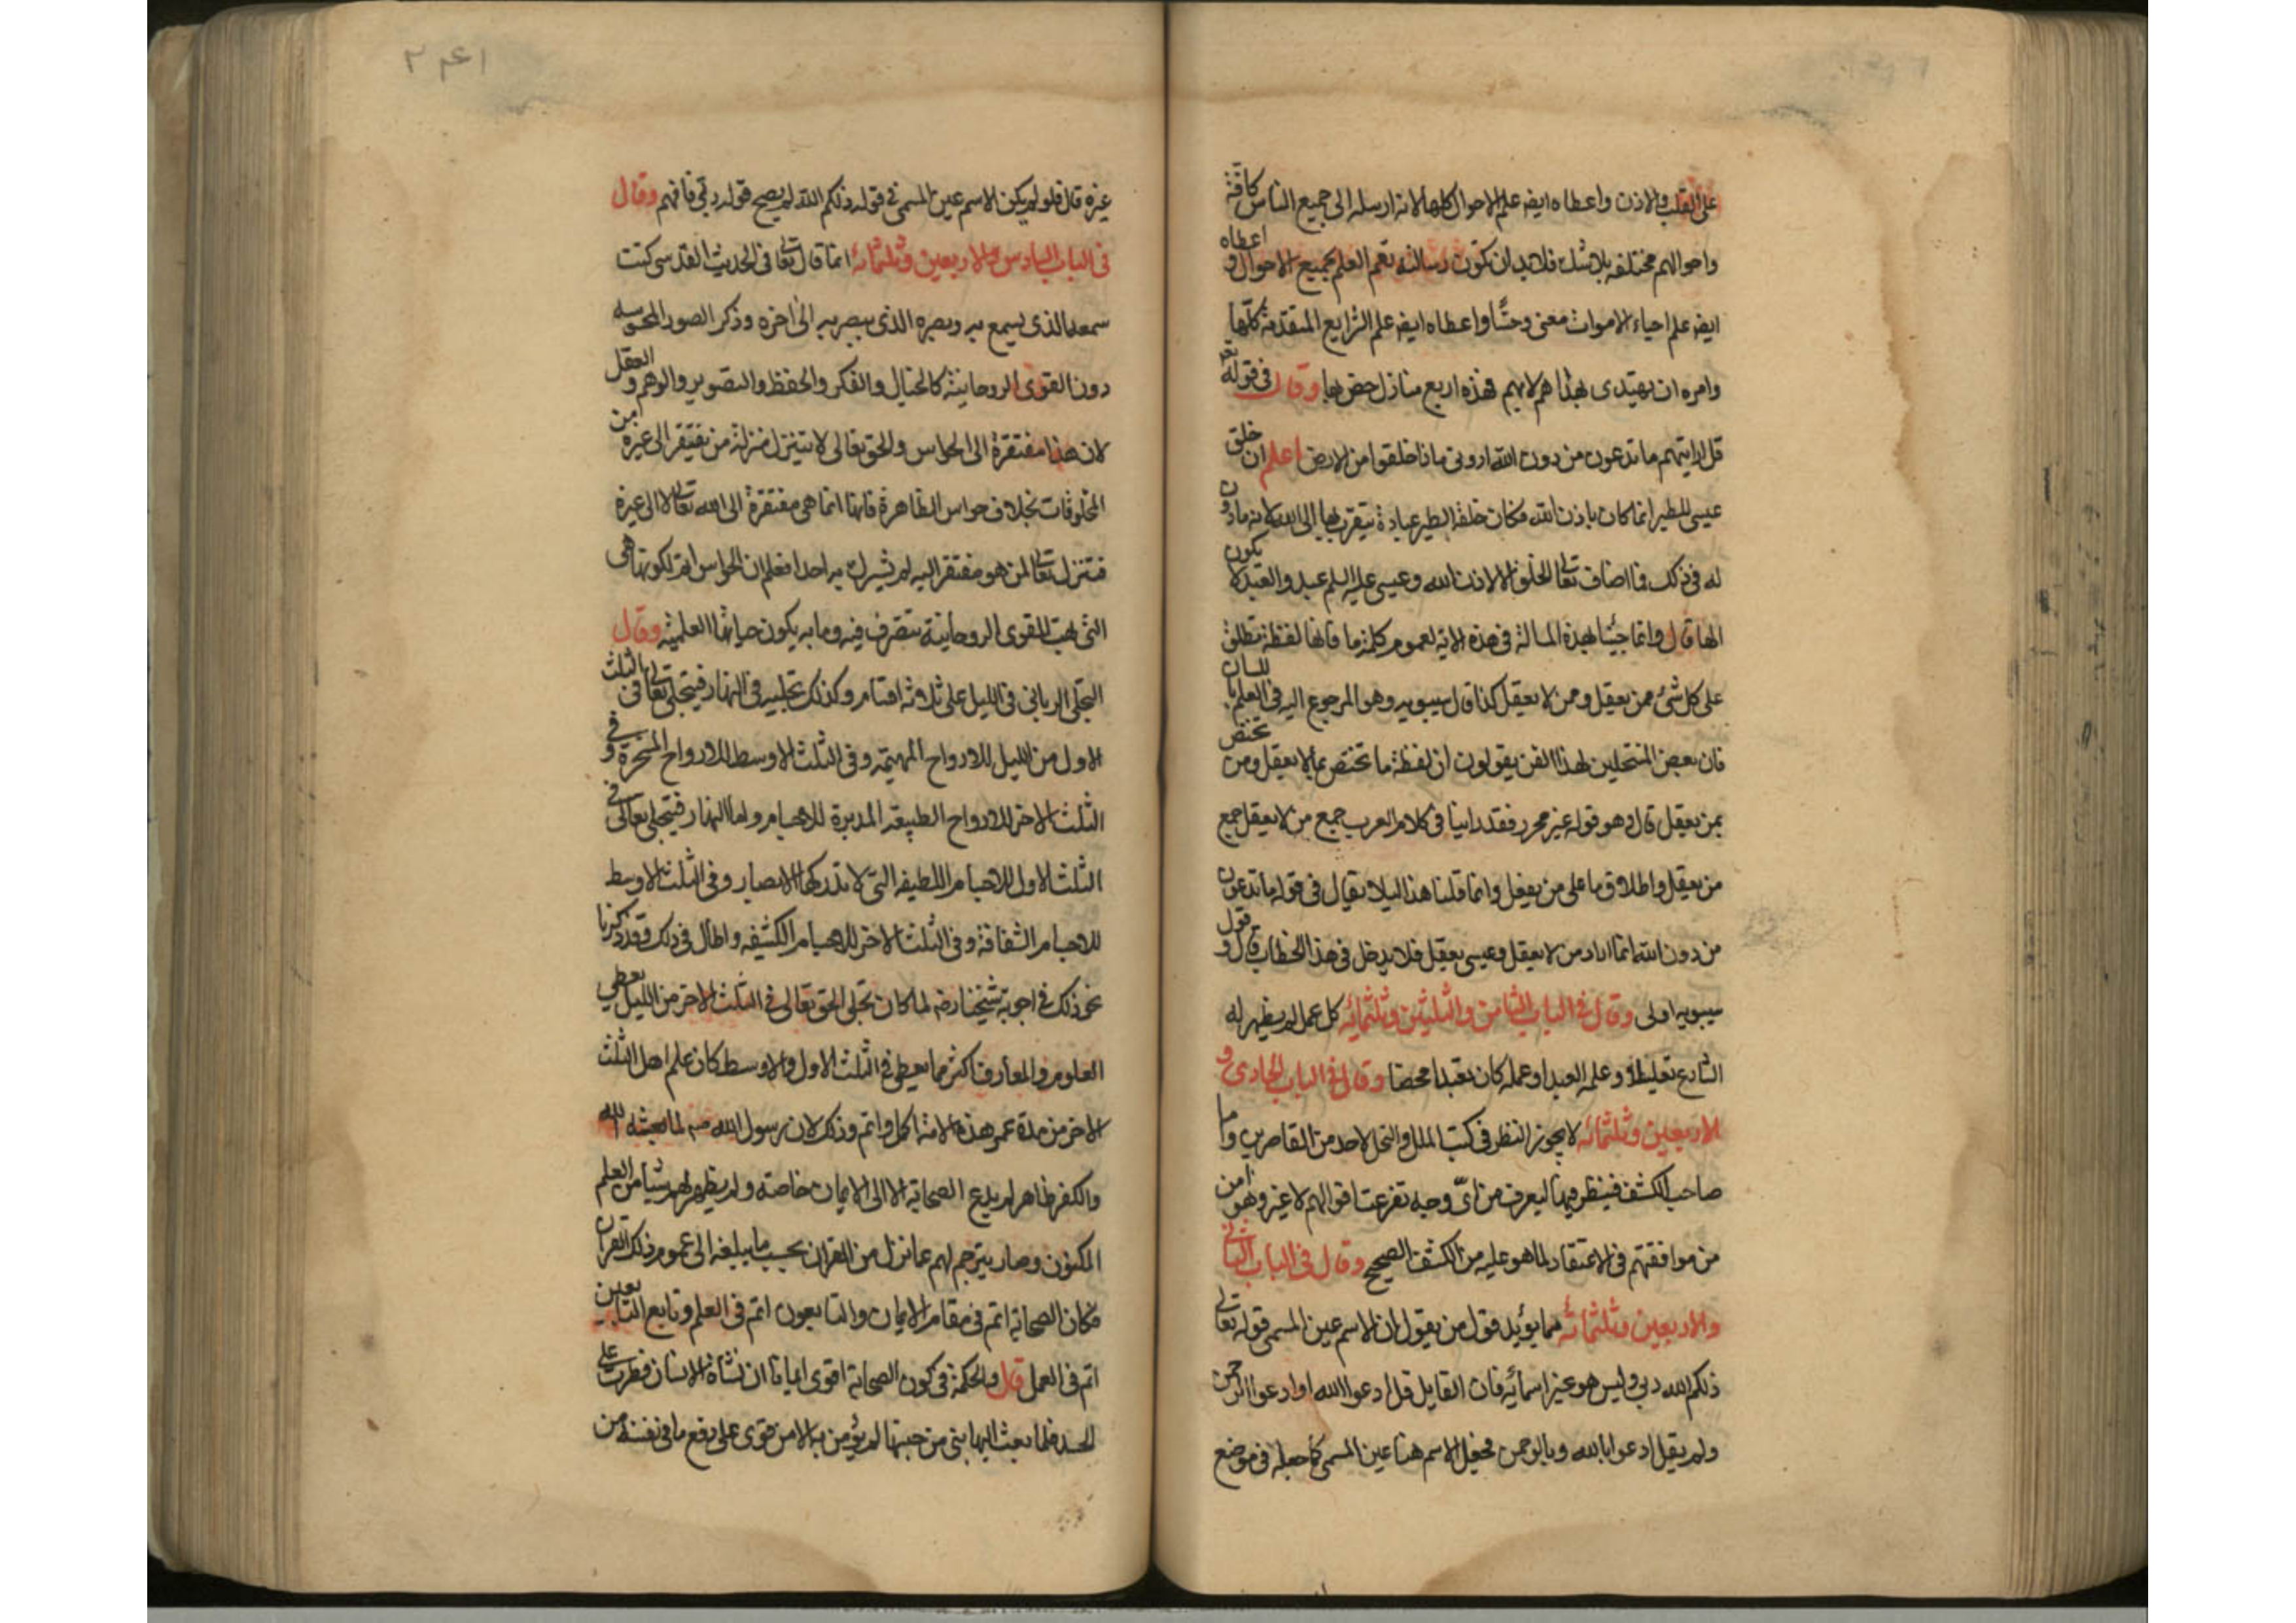 على القلب والاذن واعطاه ايضه علم الاحوال كلها لانه ارسله الى جميع الناس كافة
واحوالهم مختلفه بلا شك فلابد ان تكون رسالته تعم العلم بجميع الاحوال و اعطاه
ايضه علم احياء الاموات معنى وحسًّا واعطاه ايضه علم الشرايع المتقدمة كلّها
وامره ان يهتدى بهداهم لابهم فهذه اربع منازل خص بها وقال فى قوله تعه
قل ارايتهم ما تدعون من دون الله ارونى ماذا خلقوا من الارض اعلم ان خلق
عيسى للطير انما كان باذن الله فكان خلقه الطير عبادة يتقرب بها الى الله لانه ماذون
له فى ذلك فما اضاف تعالى الخلق الا لاذن الله وعيسى عليه السلم عبد والعبد لا يكون
الها قال وانما جئنا بهذه المسالة فى هذه الاية لعموم كلمة ما فانها لفظة تطلق
على كل شئ ممن يعقل ومن لا يعقل كذا قال سيبويه وهو المرجوع اليه فى العلم باللسان
فان بعض المنتحلين لهذا الفن يقولون ان لفظة ما تختص بما لا يعقل ومن تختص
بمن يعقل قال وهو قول غير محرر فقد راينا فى كلام العرب جمع من لا يعقل جمع
من يعقل واطلاق ما على من يعقل وانما قلنا هذا ليلا يقال فى قوله ما تدعون
من دون الله انما اراد من لا يعقل وعيسى يعقل فلا يدخل فى هذا الخطاب قال و قول
سيبويه اولى وقال فى الباب الثامن والثلثين وثلثمائه كل عمل لم يظهر له
الشارع تعليلا و علمه العبد او عمله كان تعبدا محضا وقال فى الباب الحادى و
الاربعين وثلثمائه لا يجوز النظر فى كتب الملل والنحل لاحد من القاصرين واما
صاحب الكشف فينظر فيها ليعرف من اىّ وجه تفرعت اقوالهم لا غير وهو امن
من موافقتهم فى الاعتقاد لما هو عليه من الكشف الصحيح وقال فى الباب الثانى
والاربعين وثلثمائه مما يؤيد قول من يقول ان الاسم عين المسمى قوله تعالى
ذلكم الله ربى وليس هو غير اسمائه فان القايل قل ادعوا الله او ادعوا الرحمن
ولم يقل ادعوا بالله وبالرحمن فجعل الاسم هنا عين المسمى كما جعله فى موضع
٢٤١
غيره قال فلو لم يكن الاسم عين المسمى فى قوله ذلكم الله لم يصح قوله ربى فافهم وقال
فى الباب السادس والاربعين وثلثمائه انما قال تعالى فى الحديث القدسى كنت
سمعه الذى يسمع به وبصره الذى يبصر به الى اخره وذكر الصور المحسوسه
دون القوى الروحانية كالخيال والفكر والحفظ والتصوير والوهم و العقل
لان هذا مفتقرة الى الحواس والحق تعالى لا يتنزل منزلة من يفتقر الى غيره من
المخلوقات بخلاف حواس الظاهرة فانها انما هى مفتقرة الى الله تعالى لا الى غيره
فتنزل تعالى لمن هو مفتقر اليه لم يشرك به احدا فعلم ان الحواس اتم لكونها هى
التى تهب للقوى الروحانية تتصرف فيه وما به يكون حياتها العلمية وقال
التجلى الربانى فى الليل على ثلاثه اقسام وكذلك تجليه فى النهار فيتجلى تعالى فى الثلث
الاول من الليل للارواح المهيمه وفى الثلث الاوسط للارواح المسخرة و فى
الثلث الاخر للارواح الطبيعه المدبرة للاجسام واما النهار فيتجلى تعالى فى
الثلث الاول للاجسام اللطيفه التى لا تدركها الابصار وفى الثلث الاوسط
للاجسام الشفافة وفى الثلث الاخر للاجسام الكثيفه واطال فى ذلك وقد ذكرنا
نحو ذلك فى اجوبة شيخنا رضه لما كان تجلى الحق تعالى فى الثلث الاخر من الليل يعطى
العلوم والمعارف اكثر مما يعطى فى الثلث الاول والاوسط كان علم اهل الثلث
الاخر من مدة عمر هذه الامة اكمل واتم وذلك لان رسول الله صم لما بعثه الله
والكفر ظاهر لم يدع الصحابة الا الى الايمان خاصة ولم يظهر لهم شيأ من العلم
المكنون وصار يترجم لهم عما نزل من القران بحسب ما يبلغه الى عموم ذلك القران
فكان الصحابة اتم فى مقام الايمان والتابعون اتم فى العلم وتابع التابعين
اتم فى العمل قال والحكمة فى كون الصحابة اقوى ايمانا ان نشأة الانسان فطرت على
الحسد فلما بعث اليها نبى من جنسها لم يؤمن به الا من قوى على دفع ما فى نفسه من